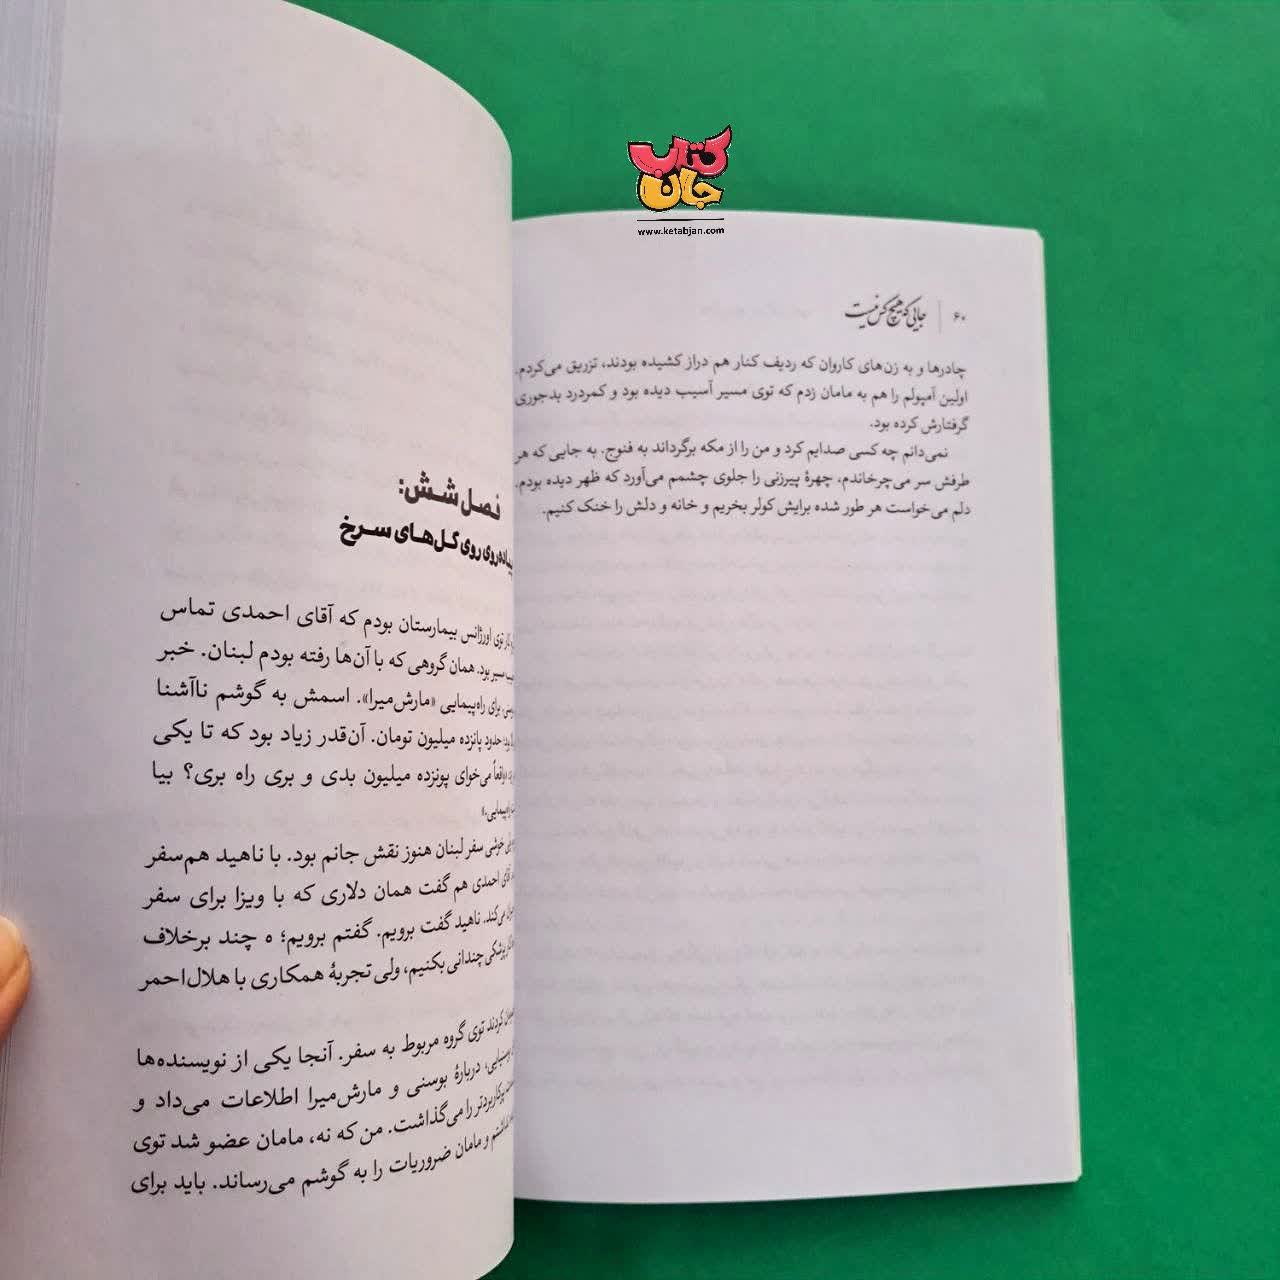 کتاب
جان
www.ketabjan.com
۶۰ | جایی که هیچ‌کس نیست
چادرها و به زن‌های کاروان که ردیف کنار هم دراز کشیده بودند، تزریق می‌کردم.
اولین آمپولم را هم به مامان زدم که توی مسیر آسیب دیده بود و کمردرد بدجوری
گرفتارش کرده بود.
نمی‌دانم چه کسی صدایم کرد و من را از مکه برگرداند به فنوج. به جایی که هر
طرفش سر می‌چرخاندم، چهرهٔ پیرزنی را جلوی چشمم می‌آورد که ظهر دیده بودم.
دلم می‌خواست هر طور شده برایش کولر بخریم و خانه و دلش را خنک کنیم.
فصل شش:
روی گل‌های سرخ
توی اورژانس بیمارستان بودم که آقای احمدی تماس
بود. همان گروهی که با آن‌ها رفته بودم لبنان. خبر
برای راه‌پیمایی «مارش‌میرا». اسمش به گوشم ناآشنا
حدود پانزده میلیون تومان. آن‌قدر زیاد بود که تا یکی
واقعاً می‌خوای پونزده میلیون بدی و بری راه بری؟ بیا
راه‌پیمایی.»
خوشی سفر لبنان هنوز نقش جانم بود. با ناهید هم‌سفر
آقای احمدی هم گفت همان دلاری که با ویزا برای سفر
می‌کند. ناهید گفت برویم. گفتم برویم؛ ه چند برخلاف
پزشکی چندانی بکنیم، ولی تجربهٔ همکاری با هلال‌احمر
کردند توی گروه مربوط به سفر. آنجا یکی از نویسنده‌ها
دربارهٔ بوسنی و مارش‌میرا اطلاعات می‌داد و
را می‌گذاشت. من که نه، مامان عضو شد توی
و مامان ضروریات را به گوشم می‌رساند. باید برای